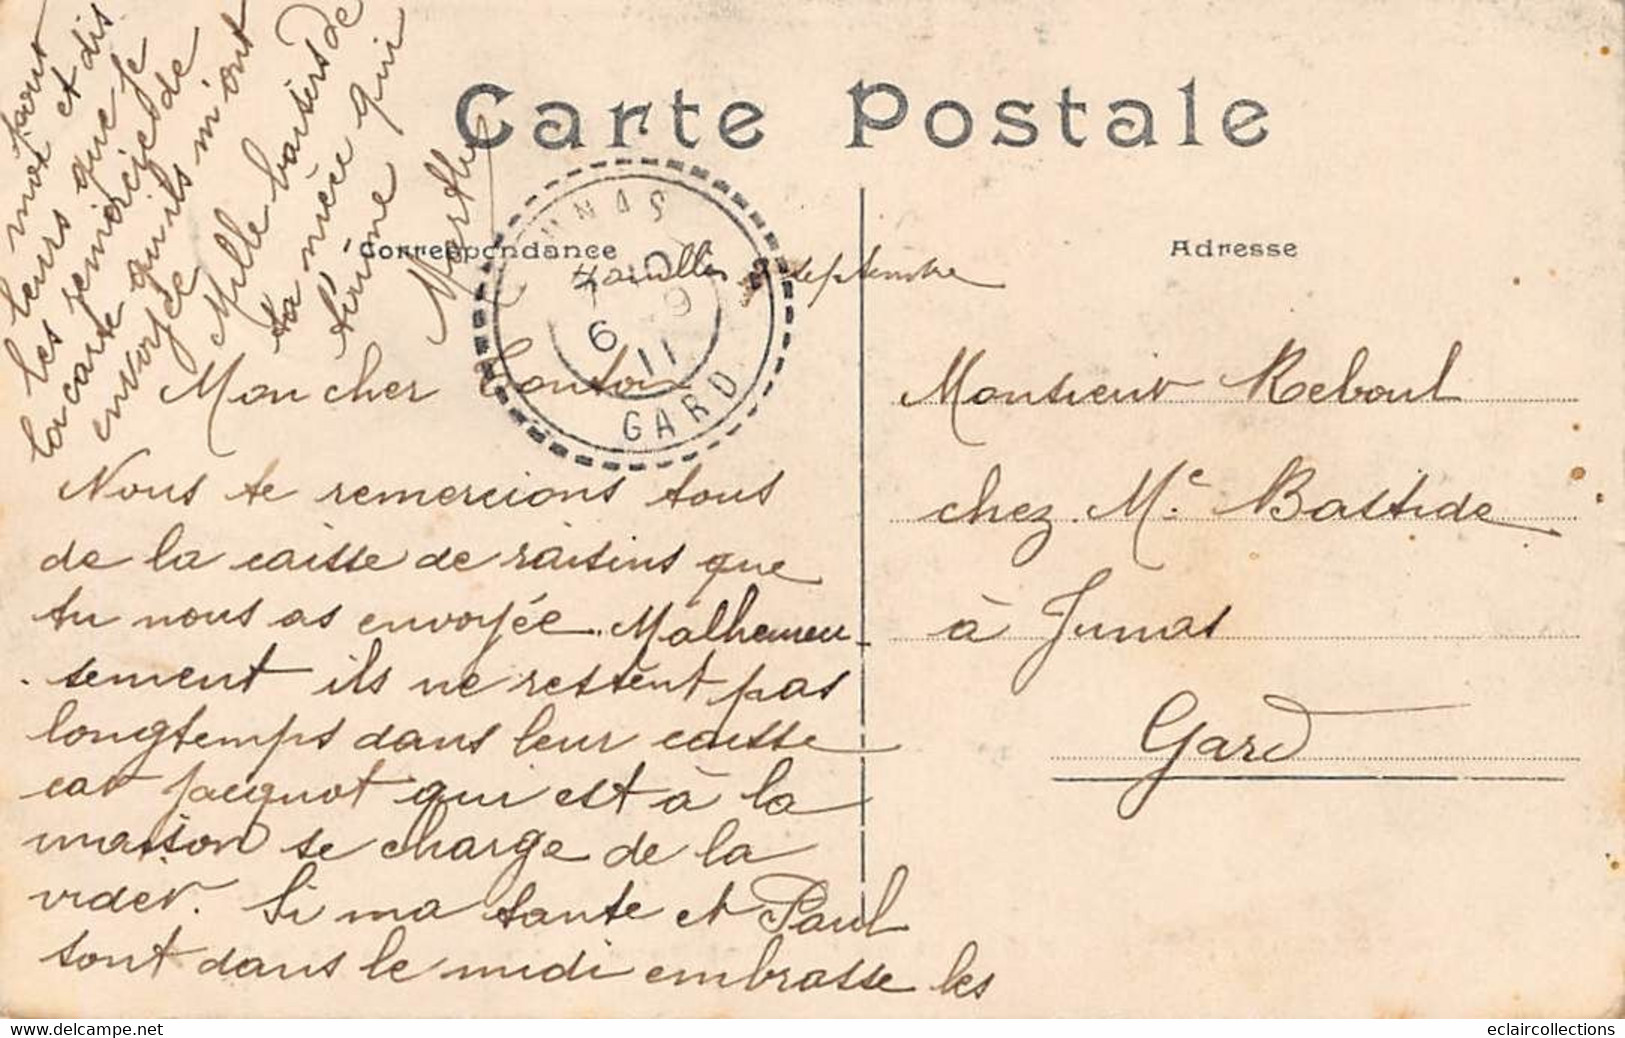 Carte Postale
Correspondance
Adresse
JUNAS
6 9
11
GARD
septembre
Mon cher Tonton
Nous te remercions tous
de la caisse de raisins que
tu nous as envoyée. Malheureu-
sement ils ne restent pas
longtemps dans leur caisse
car Jacquot qui est à la
maison se charge de la
vider. Si ma tante et Paul
sont dans le midi embrasse les
pour
moi et dis
leurs que je
les remercie de
la carte qu'ils m'ont
envoyée
Mille baisers de
ta nièce qui
t'aime
Marthe
Monsieur Reboul
chez Me Bastide
à Junas
Gard
www.delcampe.net
eclaircollections